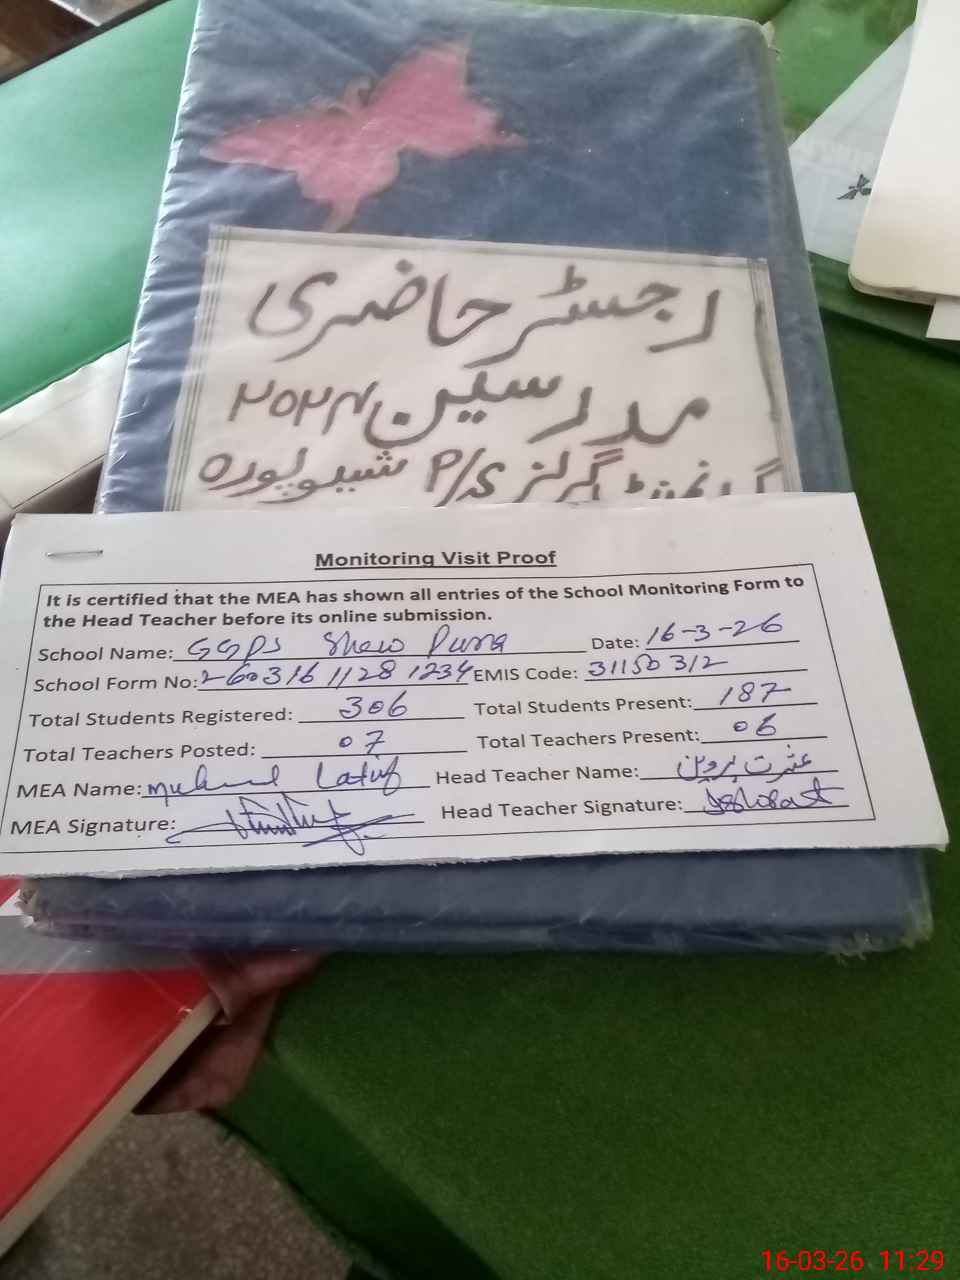 رجسٹر حاضری
مدرسین ۲۰۲۴
گورنمنٹ گرلز P/S شیوپورہ
Monitoring Visit Proof
It is certified that the MEA has shown all entries of the School Monitoring Form to
the Head Teacher before its online submission.
School Name: GGPS Sheo Pura Date: 16-3-26
School Form No: 2603161128 1234 EMIS Code: 31150312
Total Students Registered: 306 Total Students Present: 187
Total Teachers Posted: 07 Total Teachers Present: 06
MEA Name: Latif Head Teacher Name: عشرت پروین
MEA Signature: Head Teacher Signature:
16-03-26 11:29